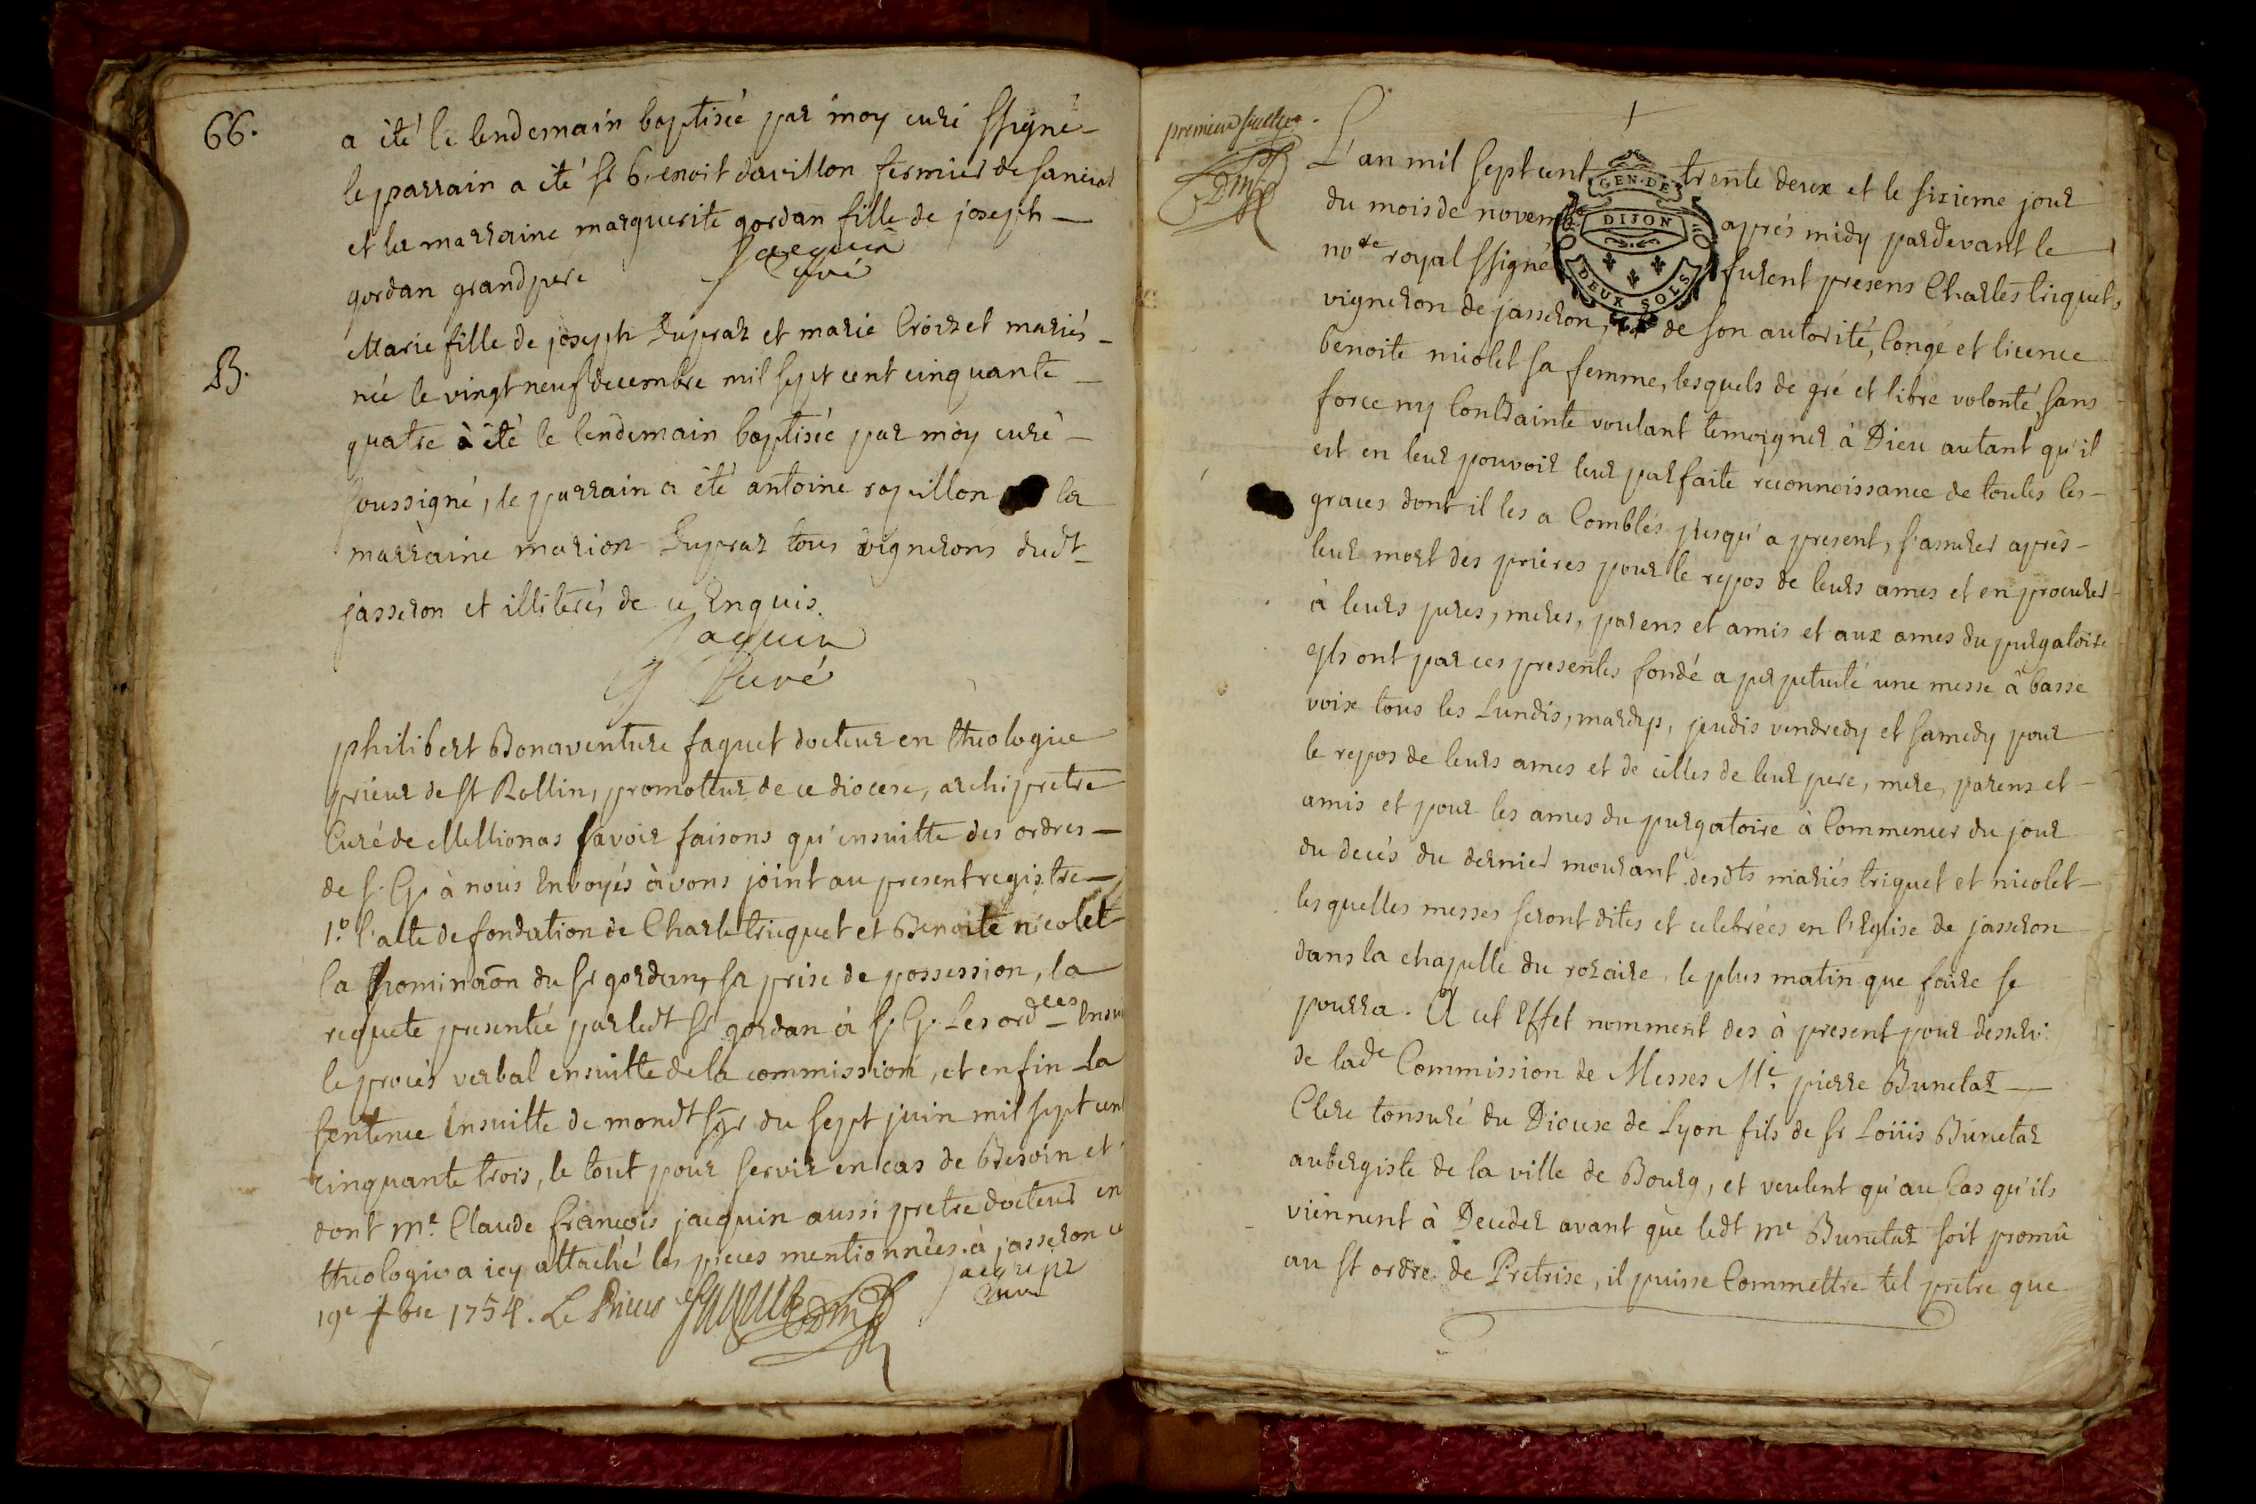 66.
a été le lendemain baptisée par moy curé ssigné
le parrain a été sr benoit davillon fermier de
et la marraine marguerite gordan fille de joseph
gordan grand pere Jacquin
Curé
B.
Marie fille de joseph Dupraz et marie Croizet mariés
née le vingt neuf decembre mil sept cent cinquante
quatre à été le lendemain baptisée par moy curé
soussigné, le parrain a été antoine ropillon la
marraine marion Dupraz tous vignerons dudt
jasseron et illiterés de ce Enquis.
Jaquin
Curé
philibert Bonaventure faquet docteur en theologie
prieur de st Rollin, promotteur de ce diocese, archipretre
Curé de Mellionas savoir faisons qu'ensuitte des ordres
de S. G. à nous Envoyés avons joint au present registre
1.º l'acte de fondation de Charle tricquet et Benoite nicolet
la Nominaõn du sr gordan, sa prise de possession, la
requete presentée par ledt sr gordan à S. G. Les ordces Ensui
le procés verbal ensuitte de la commission, et enfin la
sentence Ensuitte de mondt sgr du sept juin mil sept cent
cinquante trois, le tout pour servir en cas de Besoin et
dont me. Claude françois jacquin aussi pretre docteur en
theologie a icy attaché les pieces mentionnées. à jasseron ce
19e bre 1754. Le Prieur faquet Jacquin
Curé
premiere
L'an mil sept cent trente deux et le sixieme jour
du mois de novembre aprés midy pardevant le
nore royal ssigné furent presens Charles triquet
vigneron de jasseron, et de son autorité, Congé et licence
benoite nicolet sa femme, lesquels de gré et libre volonté, sans
force ny Contrainte voulant temoigner à Dieu autant qu'il
est en leur pouvoir leur parfaite reconnoissance de toutes les
graces dont il les a Comblés jusqu'a present, s'assurer aprés
leur mort des prieres pour le repos de leurs ames et en procurer
à leurs peres, meres, parens et amis et aux ames du purgatoire
ils ont par ces presentes fondé a perpetuité une messe à basse
voix tous les Lundis, mardys, jeudis vendredy et samedy pour
le repos de leurs ames et de celles de leur pere, mere, parens et
amis et pour les ames du purgatoire à Commencer du jour
du decés du dernier mourant desdts mariés triquet et nicolet
lesquelles messes seront dites et celebrées en l'Eglise de jasseron
dans la chapelle du rozaire le plus matin que faire se
pourra. A cet Effet nomment des à present pour desserv.
de lade Commission de Messes Me. pierre Bunetaz
Clerc tonsuré du Diocese de Lyon fils de sr Loüis Bunetaz
aubergiste de la ville de Bourg, et veulent qu'au Cas qu'ils
viennent à Deceder avant que ledt me Bunetaz soit promû
au st ordre de Pretrise, il puisse Commettre tel pretre que
GEN. DE
DIJON
DEUX SOLS